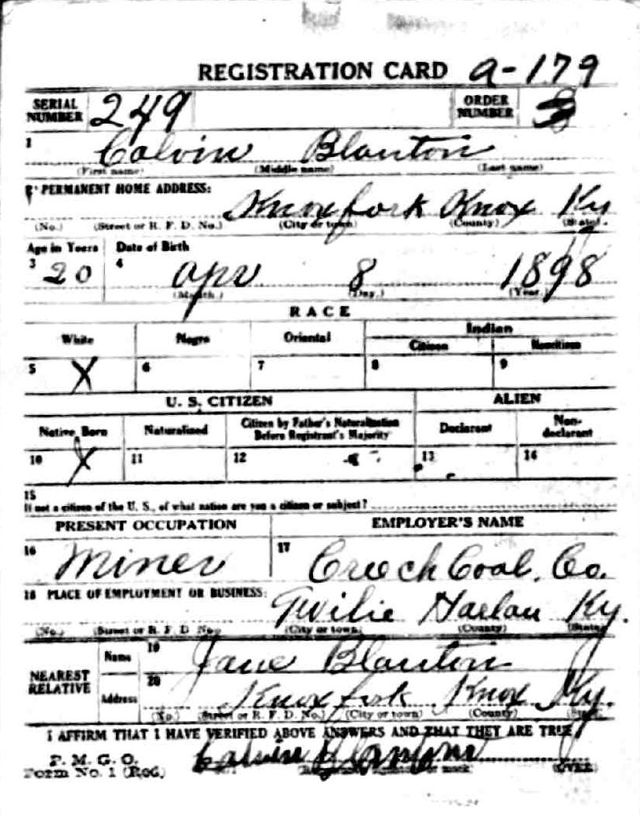 REGISTRATION CARD a-179
SERIAL NUMBER 249 ORDER NUMBER 3
1 Calvin Blanton
(First name) (Middle name) (Last name)
2 PERMANENT HOME ADDRESS:
Knoxfork Knox Ky
(No.) (Street or R. F. D. No.) (City or town) (County) (State)
Age in Years Date of Birth
3 20 4 Apr 8 1898
(Month.) (Day.) (Year.)
RACE
White Negro Oriental Indian
Citizen Noncitizen
5 X 6 7 8 9
U. S. CITIZEN ALIEN
Native Born Naturalized Citizen by Father's Naturalization Before Registrant's Majority Declarant Non-declarant
10 X 11 12 13 14
15
If not a citizen of the U. S., of what nation are you a citizen or subject?
PRESENT OCCUPATION EMPLOYER'S NAME
16 Miner 17 Creech Coal. Co.
18 PLACE OF EMPLOYMENT OR BUSINESS:
Twilie Harlan Ky.
(No.) (Street or R. F. D. No.) (City or town) (County) (State)
NEAREST RELATIVE Name 19 Jane Blanton
Address 20 Knoxfork Knox Ky.
(No.) (Street or R. F. D. No.) (City or town) (County) (State)
I AFFIRM THAT I HAVE VERIFIED ABOVE ANSWERS AND THAT THEY ARE TRUE
P. M. G. O.
Form No. 1 (Red) Calvin Blanton (OVER)